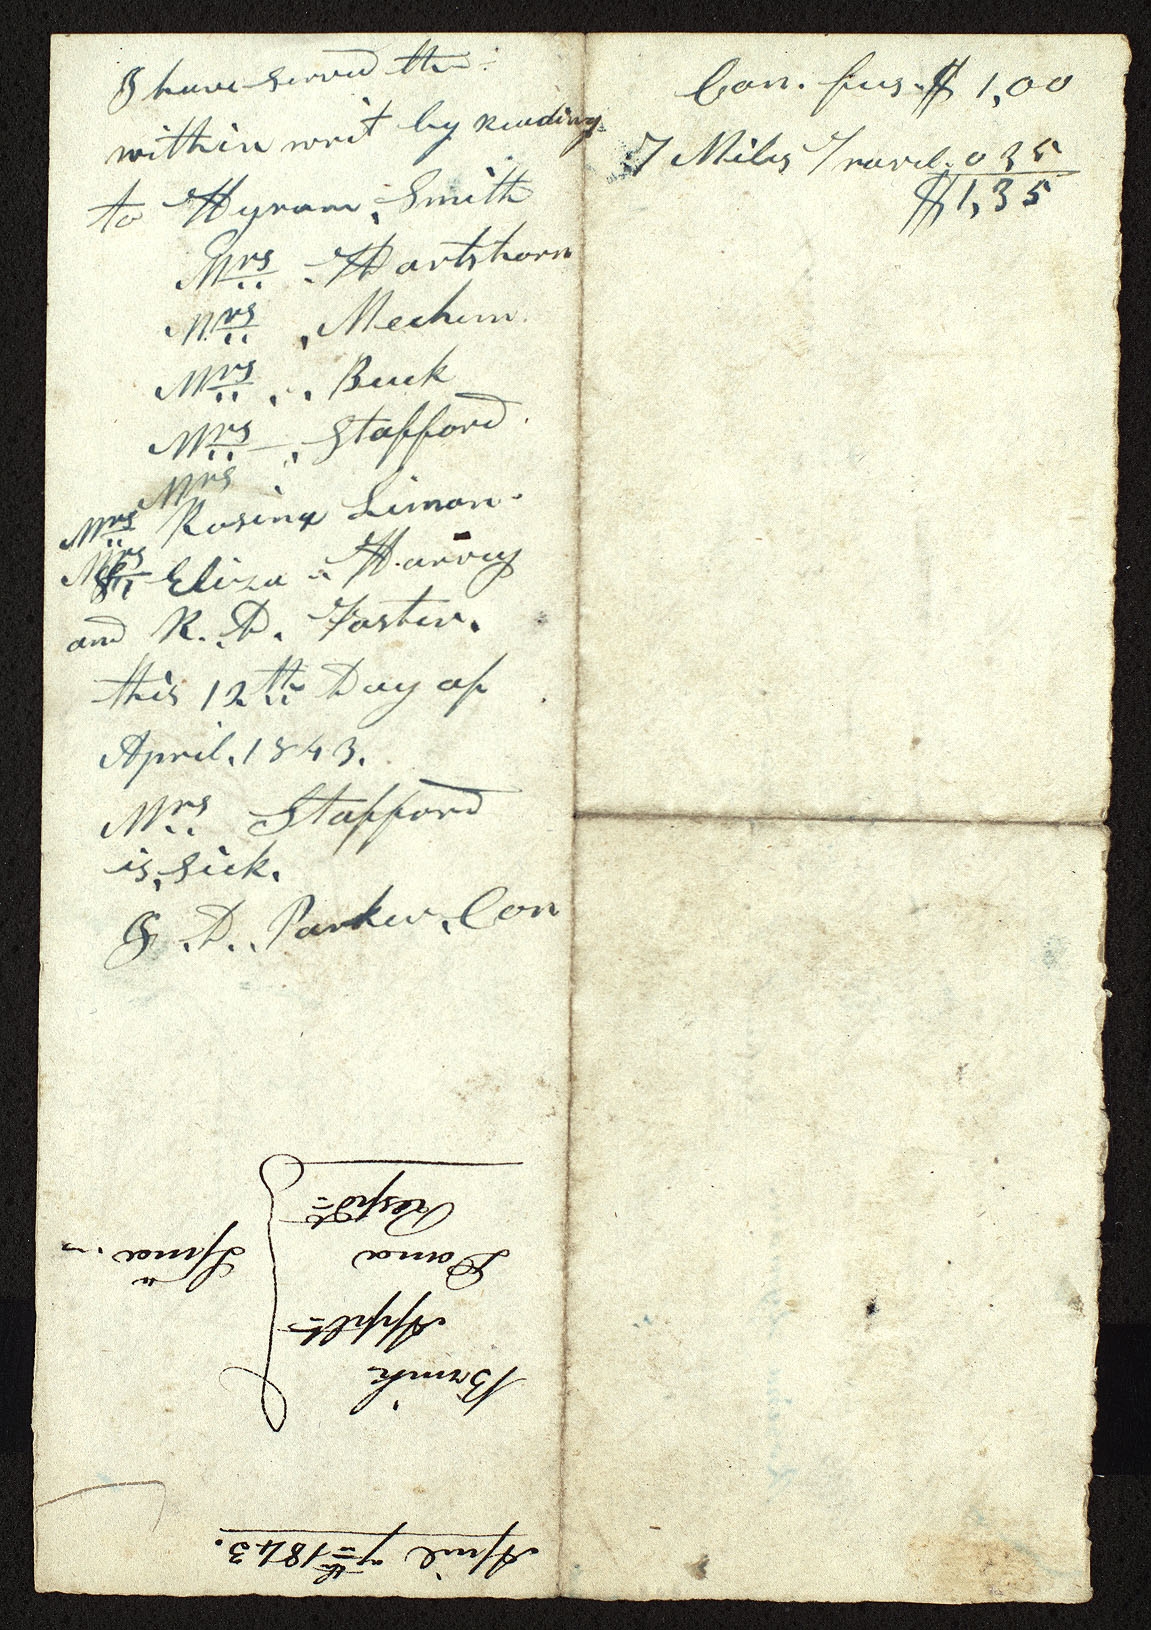 I have served the
within writ by reading
to Hyram, Smith
Mrs Hartshorn
Mrs Mechem
Mrs Buck
Mrs Stafford.
Mrs
Mrs Rosina Simon.
Mrs Eliza Harvey
and R. D. Foster.
this 12th Day of
April. 1843.
Mrs Stafford
is, sick.
D. Parker. Con
Con. fees $ 1,00
7 Miles Travel. 0 35
$1,35
April 7th 1843.
Brink
Applt
Dana
Respdt
Spna